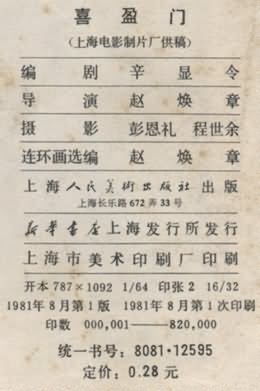 喜盈门
(上海电影制片厂供稿)
编 剧 辛显令
导 演 赵焕章
摄 影 彭恩礼 程世余
连环画选编 赵焕章
上海人民美術出版社 出版
上海长乐路 672 弄 33 号
新华書店上海发行所发行
上海市美术印刷厂印刷
开本 787×1092 1/64 印张 2 16/32
1981年8月第1版 1981年8月第1次印刷
印数 000,001——820,000
统一书号：8081·12595
定价：0.28 元